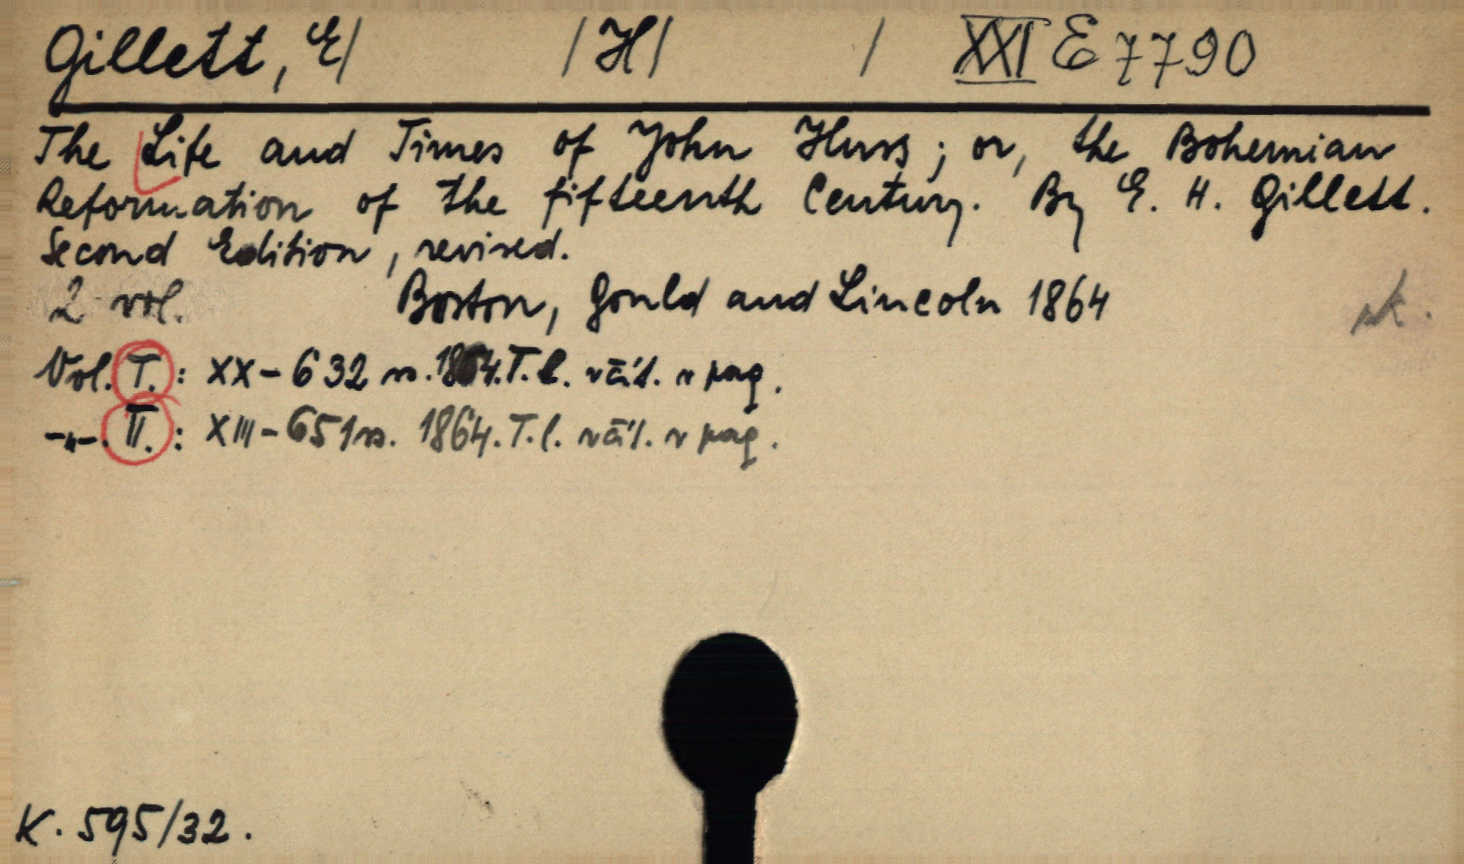 Gillett, E/ /H/ / XXI E 7790
The Life and Times of John Huss; or, the Bohemian
Reformation of the fifteenth Century. By E. H. Gillett.
Second Edition, revised.
2 vol. Boston, Gould and Lincoln 1864
Vol. I.: XX-632 ss. 1864. T.l. váz. v pag.
-"-. II.: XIII-651 ss. 1864. T.l. váz. v pag.
K. 595/32.